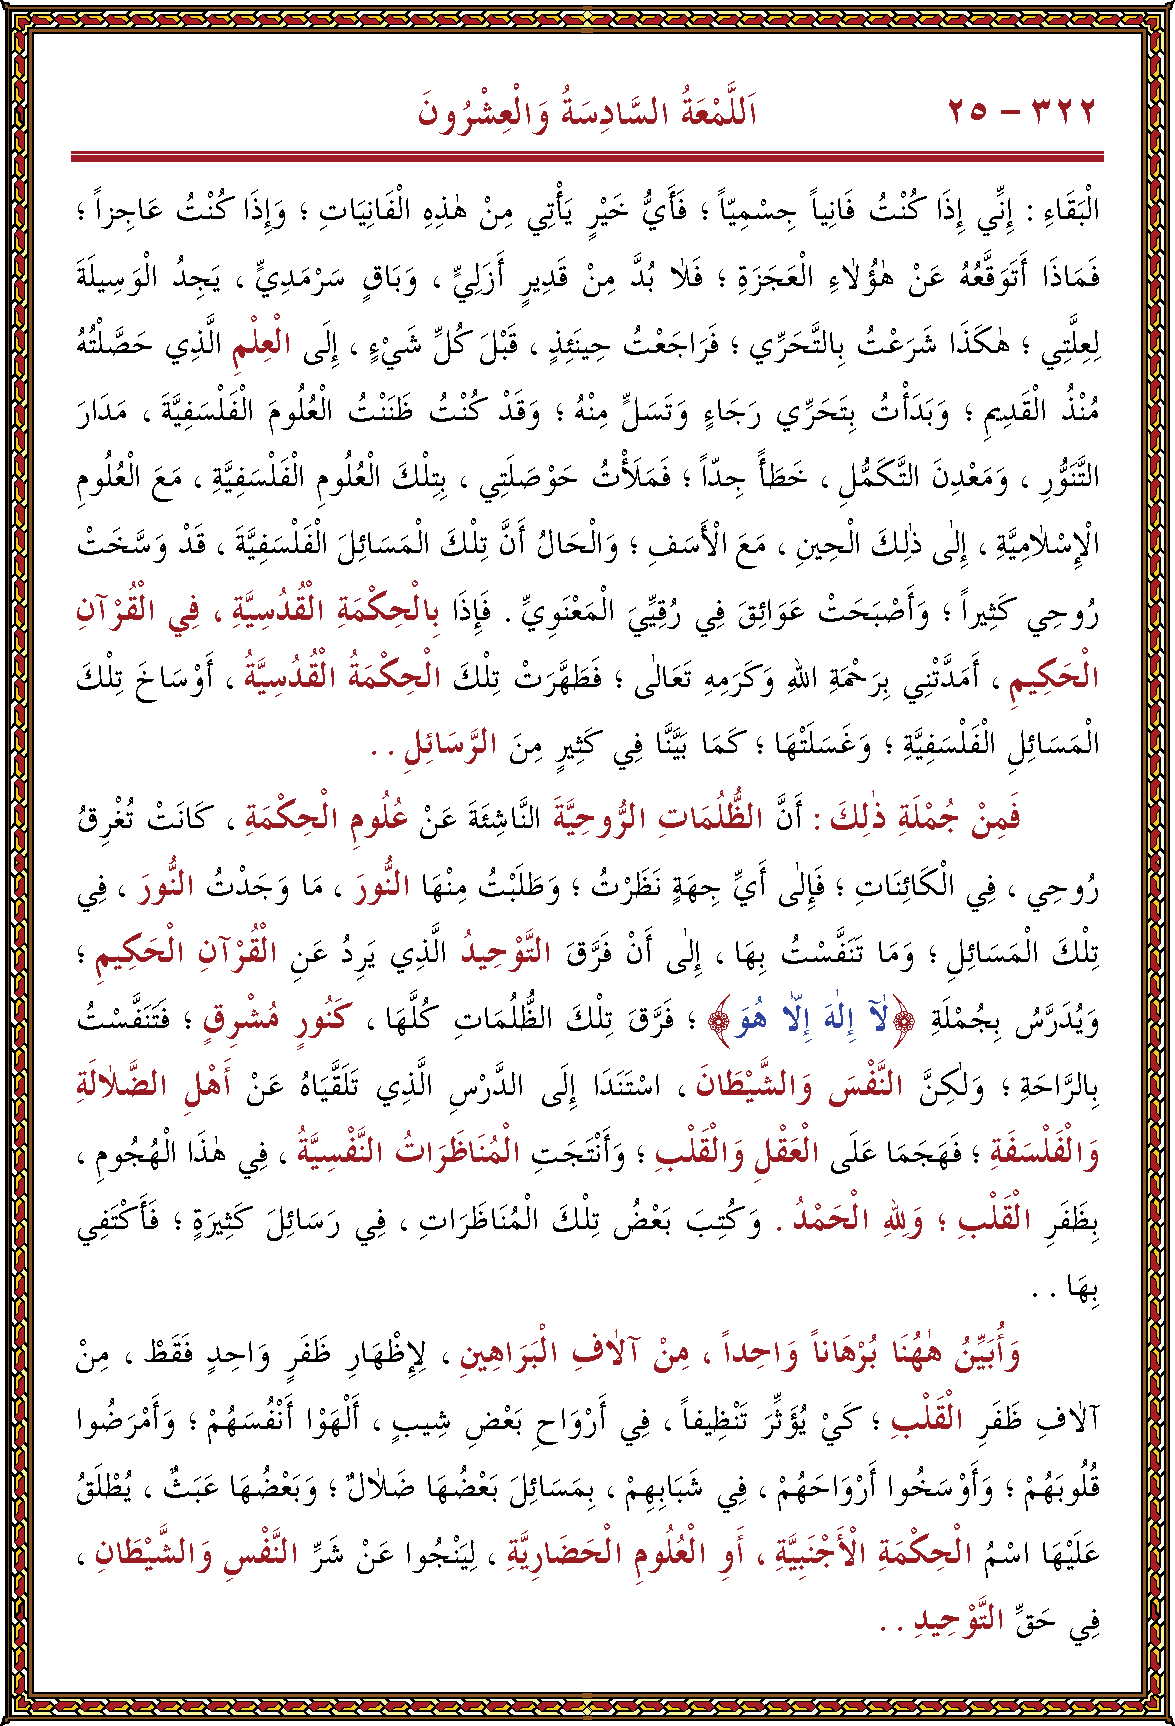 ٣٢٢ - ٢٥ اَللَّمْعَةُ السَّادِسَةُ وَالْعِشْرُونَ
الْبَقَاءِ : إِنِّي إِذَا كُنْتُ فَانِياً جِسْمِيّاً ؛ فَأَيُّ خَيْرٍ يَأْتِي مِنْ هٰذِهِ الْفَانِيَاتِ ؛ وَإِذَا كُنْتُ عَاجِزاً ؛
فَمَاذَا أَتَوَقَّعُهُ عَنْ هٰؤُلاٰءِ الْعَجَزَةِ ؛ فَلاٰ بُدَّ مِنْ قَدِيرٍ أَزَلِيٍّ ، وَبَاقٍ سَرْمَدِيٍّ ، يَجِدُ الْوَسِيلَةَ
لِعِلَّتِي ؛ هٰكَذَا شَرَعْتُ بِالتَّحَرِّي ؛ فَرَاجَعْتُ حِينَئِذٍ ، قَبْلَ كُلِّ شَيْءٍ ، إِلَى الْعِلْمِ الَّذِي حَصَّلْتُهُ
مُنْذُ الْقَدِيمِ ؛ وَبَدَأْتُ بِتَحَرِّي رَجَاءٍ وَتَسَلٍّ مِنْهُ ؛ وَقَدْ كُنْتُ ظَنَنْتُ الْعُلُومَ الْفَلْسَفِيَّةَ ، مَدَارَ
التَّنَوُّرِ ، وَمَعْدِنَ التَّكَمُّلِ ، خَطَأً جِدّاً ؛ فَمَلَأْتُ حَوْصَلَتِي ، بِتِلْكَ الْعُلُومِ الْفَلْسَفِيَّةِ ، مَعَ الْعُلُومِ
الْإِسْلاٰمِيَّةِ ، إِلٰى ذٰلِكَ الْحِينِ ، مَعَ الْأَسَفِ ؛ وَالْحَالُ أَنَّ تِلْكَ الْمَسَائِلَ الْفَلْسَفِيَّةَ ، قَدْ وَسَّخَتْ
رُوحِي كَثِيراً ؛ وَأَصْبَحَتْ عَوَائِقَ فِي رُقِيِّيَ الْمَعْنَوِيِّ . فَإِذَا بِالْحِكْمَةِ الْقُدْسِيَّةِ ، فِي الْقُرْآنِ
الْحَكِيمِ ، أَمَدَّتْنِي بِرَحْمَةِ اللهِ وَكَرَمِهِ تَعَالٰى ؛ فَطَهَّرَتْ تِلْكَ الْحِكْمَةُ الْقُدْسِيَّةُ ، أَوْسَاخَ تِلْكَ
الْمَسَائِلِ الْفَلْسَفِيَّةِ ؛ وَغَسَلَتْهَا ؛ كَمَا بَيَّنَّا فِي كَثِيرٍ مِنَ الرَّسَائِلِ . .
فَمِنْ جُمْلَةِ ذٰلِكَ : أَنَّ الظُّلُمَاتِ الرُّوحِيَّةَ النَّاشِئَةَ عَنْ عُلُومِ الْحِكْمَةِ ، كَانَتْ تُغْرِقُ
رُوحِي ، فِي الْكَائِنَاتِ ؛ فَإِلٰى أَيِّ جِهَةٍ نَظَرْتُ ؛ وَطَلَبْتُ مِنْهَا النُّورَ ، مَا وَجَدْتُ النُّورَ ، فِي
تِلْكَ الْمَسَائِلِ ؛ وَمَا تَنَفَّسْتُ بِهَا ، إِلٰى أَنْ فَرَّقَ التَّوْحِيدُ الَّذِي يَرِدُ عَنِ الْقُرْآنِ الْحَكِيمِ ؛
وَيُدَرَّسُ بِجُمْلَةِ ﴿لٰآ إِلٰهَ إِلاّٰ هُوَ﴾ ؛ فَرَّقَ تِلْكَ الظُّلُمَاتِ كُلَّهَا ، كَنُورٍ مُشْرِقٍ ؛ فَتَنَفَّسْتُ
بِالرَّاحَةِ ؛ وَلٰكِنَّ النَّفْسَ وَالشَّيْطَانَ ، اسْتَنَدَا إِلَى الدَّرْسِ الَّذِي تَلَقَّيَاهُ عَنْ أَهْلِ الضَّلاٰلَةِ
وَالْفَلْسَفَةِ ؛ فَهَجَمَا عَلَى الْعَقْلِ وَالْقَلْبِ ؛ وَأَنْتَجَتِ الْمُنَاظَرَاتُ النَّفْسِيَّةُ ، فِي هٰذَا الْهُجُومِ ،
بِظَفَرِ الْقَلْبِ ؛ وَلِلّٰهِ الْحَمْدُ . وَكُتِبَ بَعْضُ تِلْكَ الْمُنَاظَرَاتِ ، فِي رَسَائِلَ كَثِيرَةٍ ؛ فَأَكْتَفِي
بِهَا . .
وَأُبَيِّنُ هٰهُنَا بُرْهَاناً وَاحِداً ، مِنْ آلاٰفِ الْبَرَاهِينِ ، لِإِظْهَارِ ظَفَرٍ وَاحِدٍ فَقَطْ ، مِنْ
آلاٰفِ ظَفَرِ الْقَلْبِ ؛ كَيْ يُؤَثِّرَ تَنْظِيفاً ، فِي أَرْوَاحِ بَعْضِ شِيبٍ ، أَلْهَوْا أَنْفُسَهُمْ ؛ وَأَمْرَضُوا
قُلُوبَهُمْ ؛ وَأَوْسَخُوا أَرْوَاحَهُمْ ، فِي شَبَابِهِمْ ، بِمَسَائِلَ بَعْضُهَا ضَلاٰلٌ ؛ وَبَعْضُهَا عَبَثٌ ، يُطْلَقُ
عَلَيْهَا اسْمُ الْحِكْمَةِ الْأَجْنَبِيَّةِ ، أَوِ الْعُلُومِ الْحَضَارِيَّةِ ، لِيَنْجُوا عَنْ شَرِّ النَّفْسِ وَالشَّيْطَانِ ،
فِي حَقِّ التَّوْحِيدِ . .